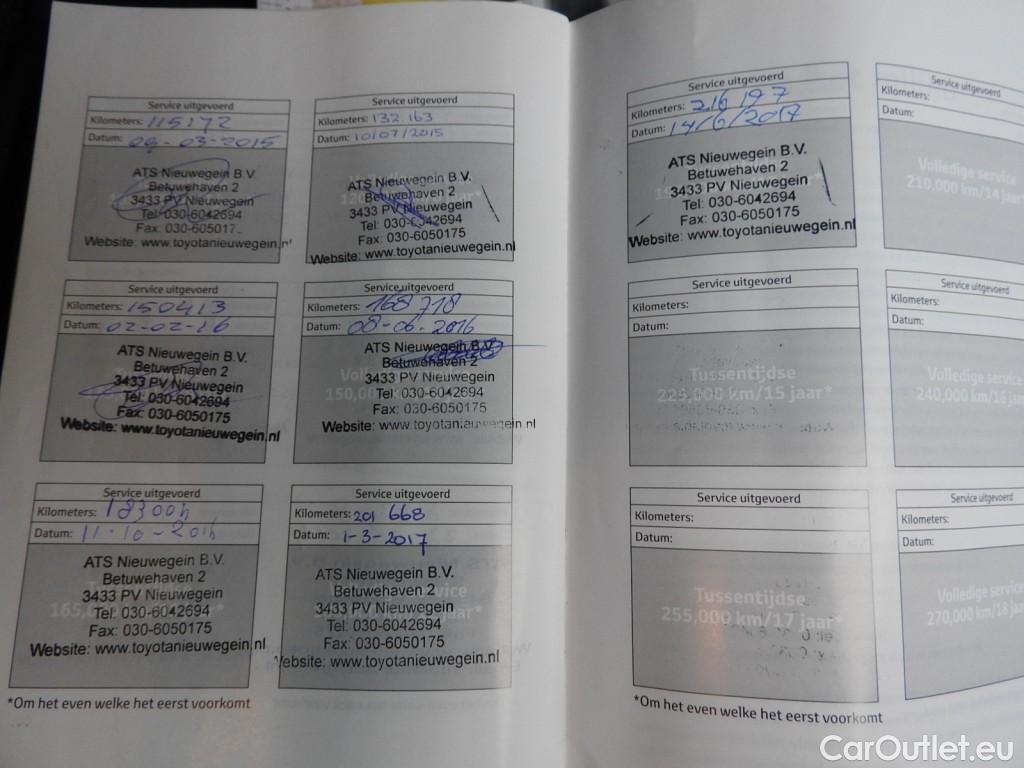 Service uitgevoerd
Kilometers: 115172
Datum: 09-03-2015
ATS Nieuwegein B.V.
Betuwehaven 2
3433 PV Nieuwegein
Tel: 030-6042694
Fax: 030-605017
Website: www.toyotanieuwegein.nl
Service uitgevoerd
Kilometers: 132.163
Datum: 10/07/2015
ATS Nieuwegein B.V.
Betuwehaven 2
3433 PV Nieuwegein
Tel: 030-6042694
Fax: 030-6050175
Website: www.toyotanieuwegein.nl
Service uitgevoerd
Kilometers: 150413
Datum: 02-02-16
ATS Nieuwegein B.V.
Betuwehaven 2
3433 PV Nieuwegein
Tel: 030-6042694
Fax: 030-6050175
Website: www.toyotanieuwegein.nl
Service uitgevoerd
Kilometers: 168718
Datum: 08-06-2016
ATS Nieuwegein B.V.
Betuwehaven 2
3433 PV Nieuwegein
Tel: 030-6042694
150,00
Fax: 030-6050175
Website: www.toyotanieuwegein.nl
Service uitgevoerd
Kilometers:
Datum: 11-10-2016
ATS Nieuwegein B.V.
Betuwehaven 2
3433 PV Nieuwegein
Tel: 030-6042694
Fax: 030-6050175
Website: www.toyotanieuwegein.nl
Service uitgevoerd
Kilometers: 201 668
Datum: 1-3-2017
ATS Nieuwegein B.V.
Betuwehaven 2
3433 PV Nieuwegein
Tel: 030-6042694
Fax: 030-6050175
Website: www.toyotanieuwegein.nl
*Om het even welke het eerst voorkomt
Service uitgevoerd
Kilometers: 216 197
Datum: 14/6/2017
ATS Nieuwegein B.V.
Betuwehaven 2
3433 PV Nieuwegein
Tel: 030-6042694
Fax: 030-6050175
Website: www.toyotanieuwegein.nl
Service uitgevoerd
Kilometers:
Datum:
Volledige service
210,000 km/14 jaar*
Service uitgevoerd
Kilometers:
Datum:
Tussentijdse
225,000 km/15 jaar*
Service uitgevoerd
Kilometers:
Datum:
Volledige service
240,000 km/16 jaar
Service uitgevoerd
Kilometers:
Datum:
Tussentijdse
255,000 km/17 jaar*
Service uitgevoerd
Kilometers:
Datum:
Volledige service
270,000 km/18 jaar
*Om het even welke het eerst voorkomt
CarOutlet.eu